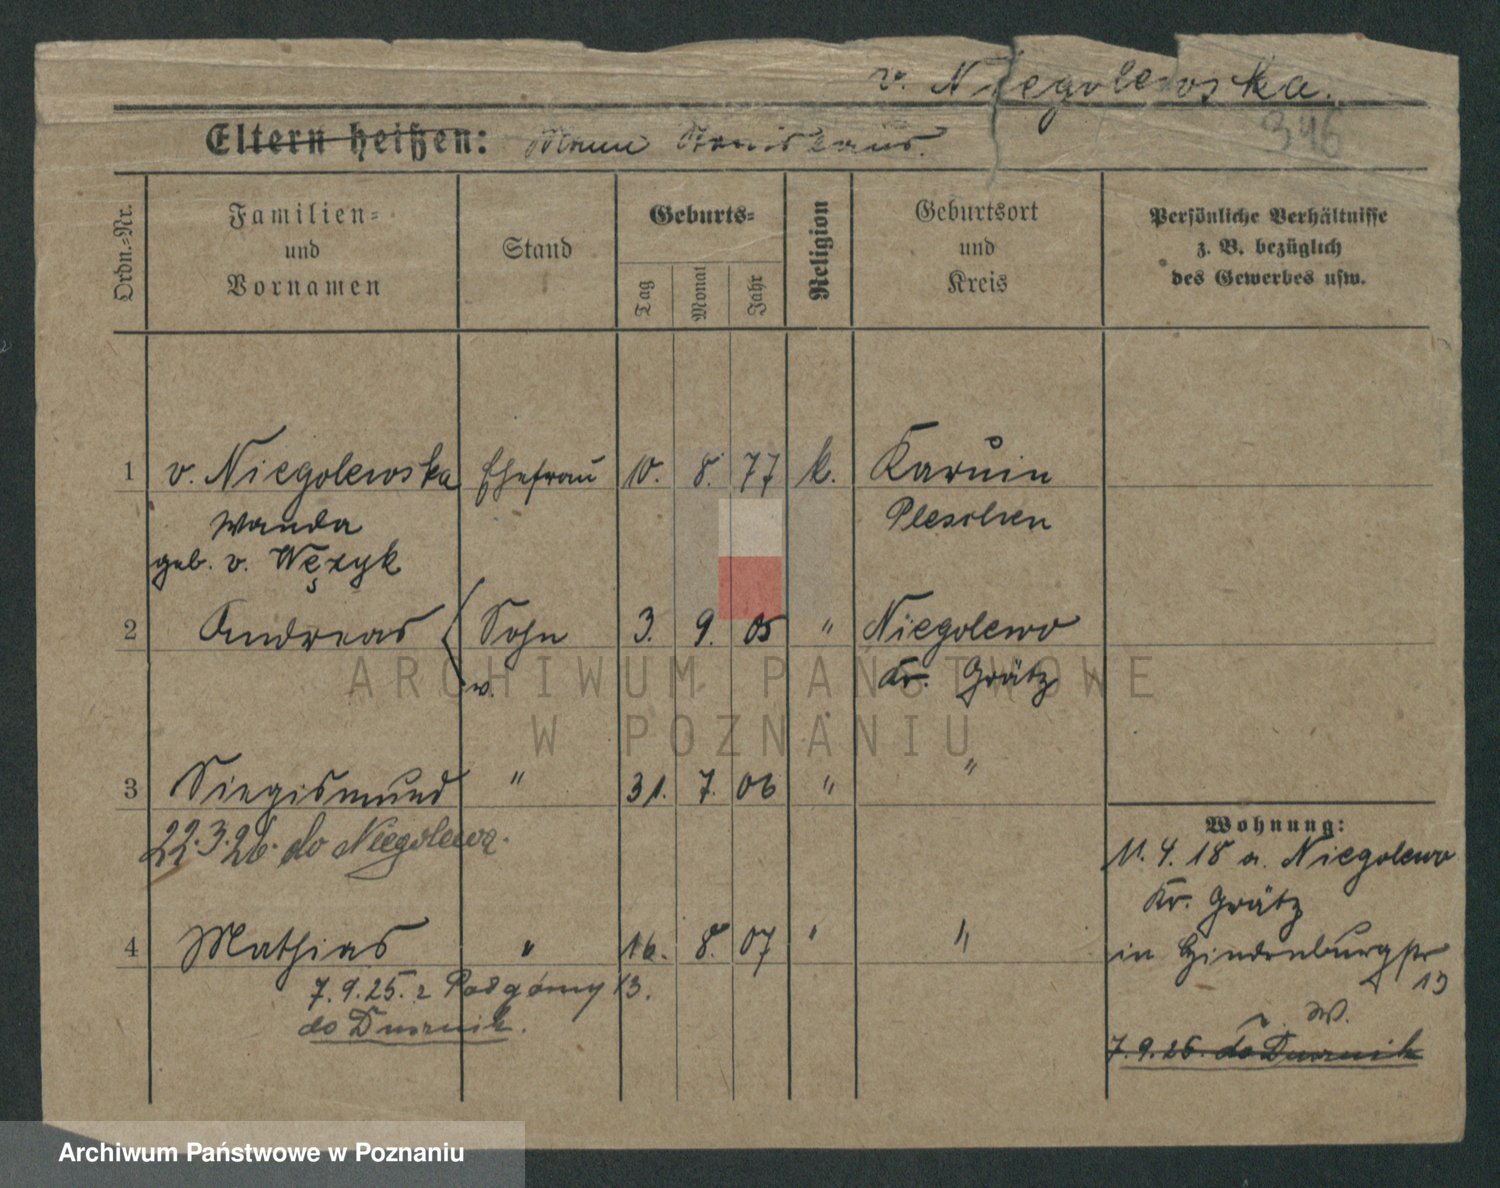 v. Niegolewska.
346
Eltern heißen: Mann Stanislaus.
Ordn.=Nr.
Familien=
und
Vornamen
Stand
Geburts=
Tag
Monat
Jahr
Religion
Geburtsort
und
Kreis
Persönliche Verhältnisse
z. B. bezüglich
des Gewerbes usw.
1 v. Niegolewska Ehefrau 10. 8. 77 k. Karmin
Wanda Pleschen
geb. v. Węzyk
2 Andreas Sohn 3. 9. 05 " Niegolewo
v. Kr. Grätz
3 Siegismund " 31. 7. 06 " "
22.3.26. do Niegolewa.
Wohnung:
11. 4. 18 a. Niegolewo
Kr. Grätz
4 Mathias " 16. 8. 07 " "
in Hindenburgstr
13
7.9.25. z Podgórny 13.
do Dusznik.
W.
7.9.25. do Dusznik
ARCHIWUM PAŃSTWOWE
W POZNANIU
Archiwum Państwowe w Poznaniu